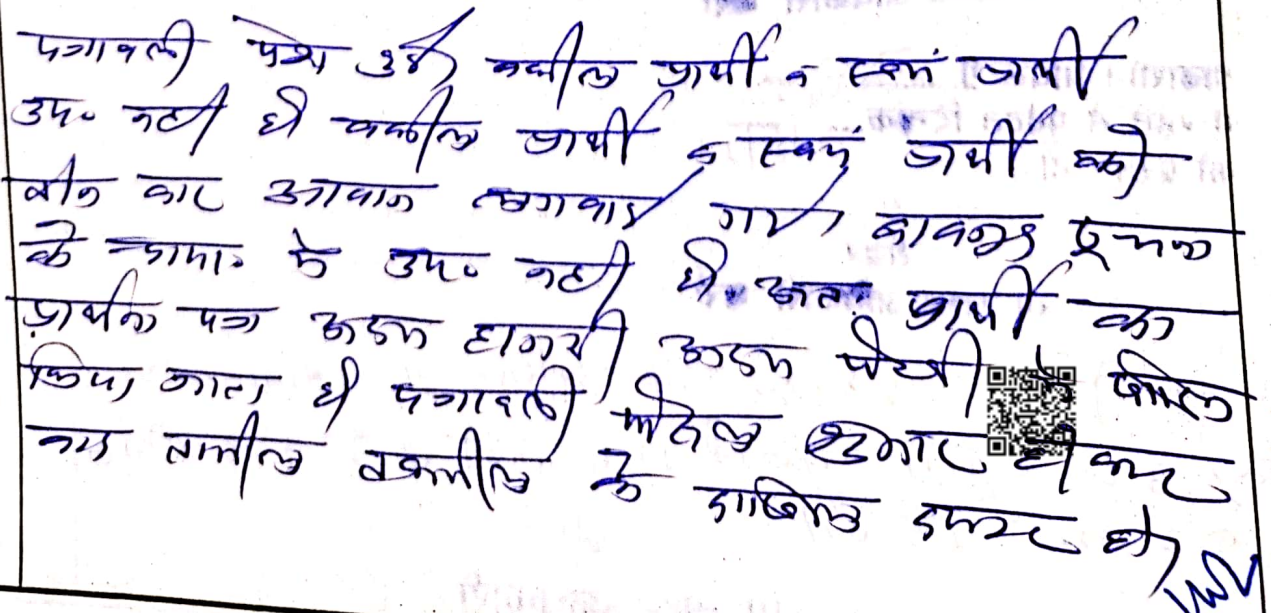 पत्रावली पेश हुई वकील प्रार्थी व स्वयं प्रार्थी
उप० नही है वकील प्रार्थी व स्वयं प्रार्थी को
तीन बार आवाज लगवाई गयी बावजूद सूचना
के न्याया० के उप० नही है। अतः प्रार्थी का
प्रार्थना पत्र अदम हाजरी अदम पैरवी में खारिज
किया जाता है पत्रावली फैसल शुमार होकर
बाद तामील तकमील के दाखिल दफ्तर हो।